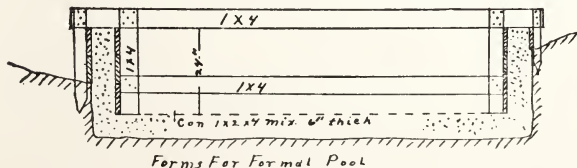 1X4
1X4
24"
1X4
Con 1x2x4 mix. 6" thick
Forms For Formal Pool